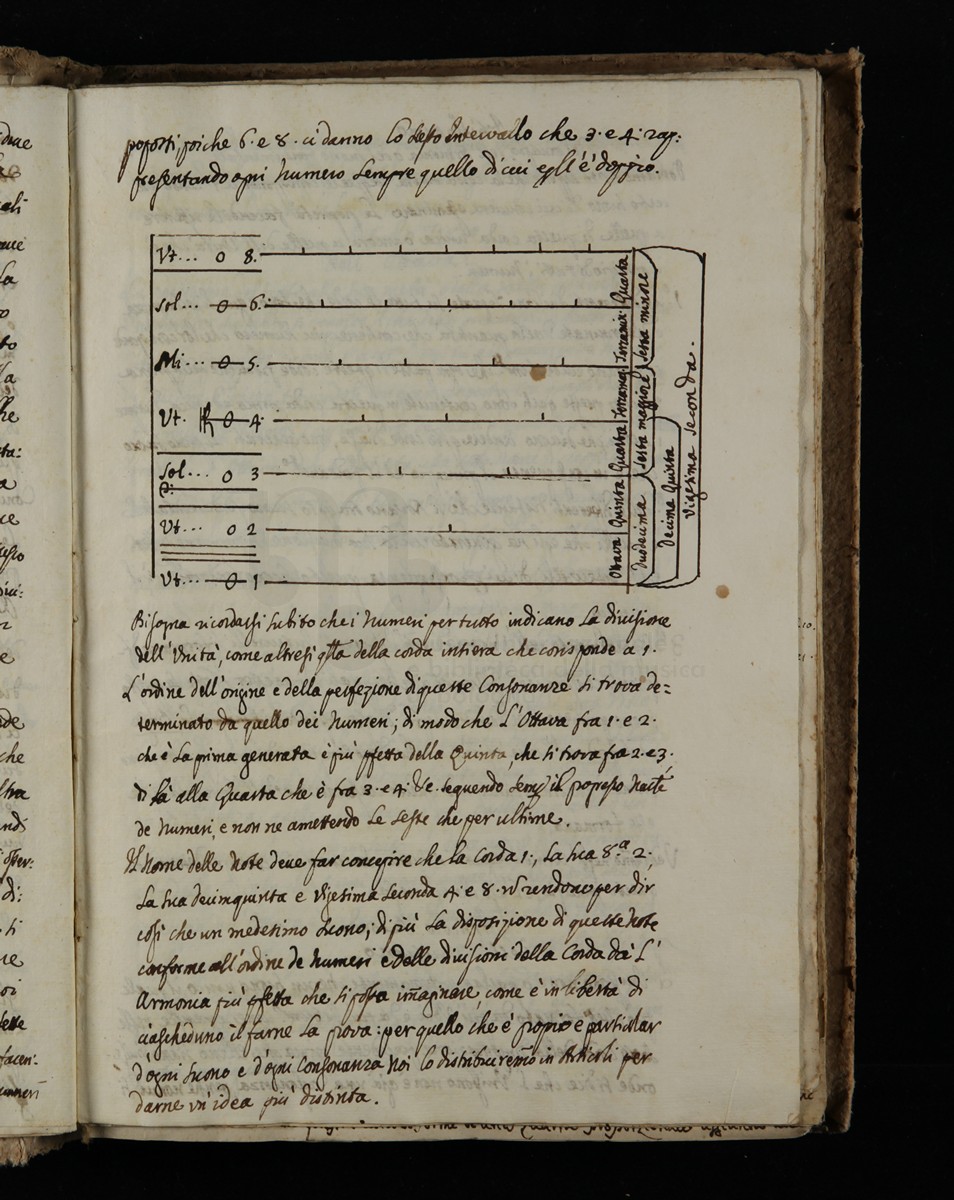 posti, poiche 6. e 8. ci danno lo stesso Intervallo che 3. e 4. rap:
presentando ogni Numero sempre quello di cui egl'è doppio.
Vt... o 8.
Sol... o 6.
Mi... o 5.
Vt. o 4.
Sol... o 3
Vt... o 2
Vt... o 1
Ottava Quinta Quarta Terza mag. Terza min. Quarta
Duodecima Sesta maggiore Sesta minore
Decima Quinta
Vigesima Seconda.
Bisogna ricordarsi subito che i Numeri per tutto indicano La divisione
dell'Vnità, come altresi qsta della corda intiera che corisponde a 1.
L'ordine dell'origine e della perfezione di queste Consonanze si trova de=
terminato da quello dei Numeri; di modo che L'Ottava fra 1. e 2.
che è La prima generata è più pfetta della Quinta, che si trova fra 2. e 3.
di là alla Quarta che è fra 3. e 4. &c. seguendo semp il
de Numeri, e non ne amettendo Le Seste che per ultime.
Il Nome delle Note deve far concepire che La Corda 1., La sua 8.ª 2.,
La sua decimquinta e Vigesima Seconda 4. e 8. rendono per dir
cosi che un medesimo Suono; di più La disposizione di queste Note
conforme all'ordine de Numeri e delle divisioni della Corda dà L'
Armonia più pfetta che si possa imaginare, come è in libertà di
ciascheduno il farne La prova: per quello che è propio e particolar
d'ogni Suono e d'ogni Consonanza Noi lo distribuiremo in Articoli per
darne vn'idea più distinta.